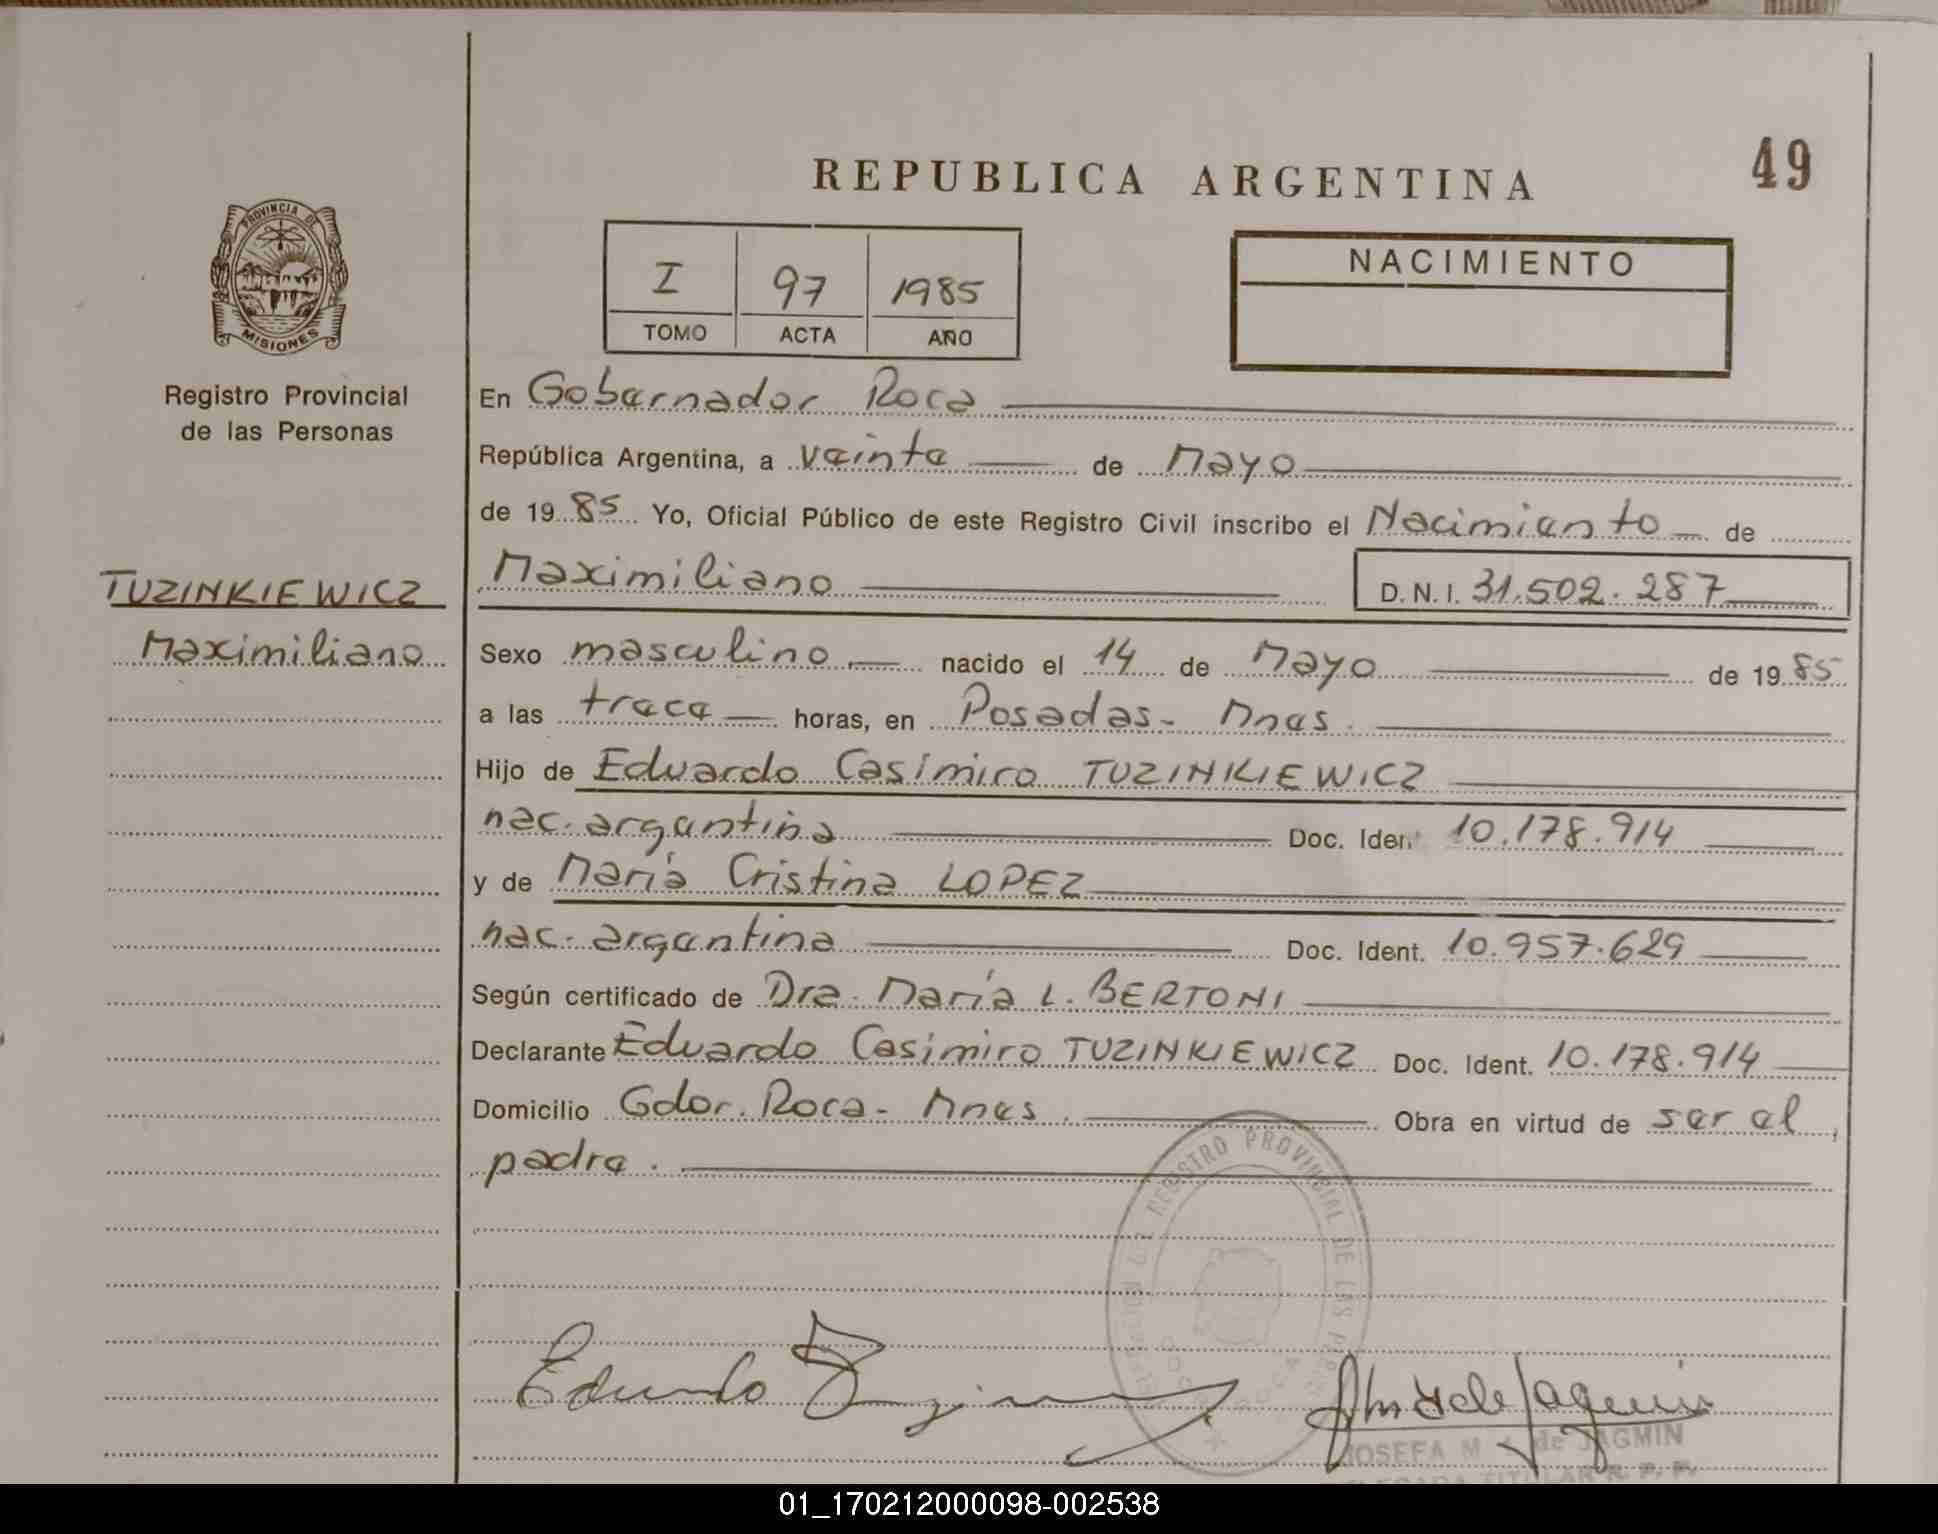 49
REPUBLICA ARGENTINA
PROVINCIA DE
MISIONES
Registro Provincial
de las Personas
I 97 1985
TOMO ACTA AÑO
NACIMIENTO
En Gobernador Roca
República Argentina, a veinte de Mayo
de 1985 Yo, Oficial Público de este Registro Civil inscribo el Nacimiento de
Maximiliano D.N.I. 31.502.287
TUZINKIEWICZ
Maximiliano
Sexo masculino nacido el 14 de Mayo de 1985
a las trece horas, en Posadas- Mnes.
Hijo de Eduardo Casimiro TUZINKIEWICZ
nac. argentina Doc. Ident 10.178.914
y de María Cristina LOPEZ
nac. argentina Doc. Ident. 10.957.629
Según certificado de Dra. María L. BERTONI
Declarante Eduardo Casimiro TUZINKIEWICZ Doc. Ident. 10.178.914
Domicilio Gdor. Roca- Mnes. Obra en virtud de ser el
padre.
REGISTRO PROVINCIAL DE LAS
ROCA
Eduardo
JOSEFA M de JAGMIN
TITULAR R. P. P.
01_170212000098-002538